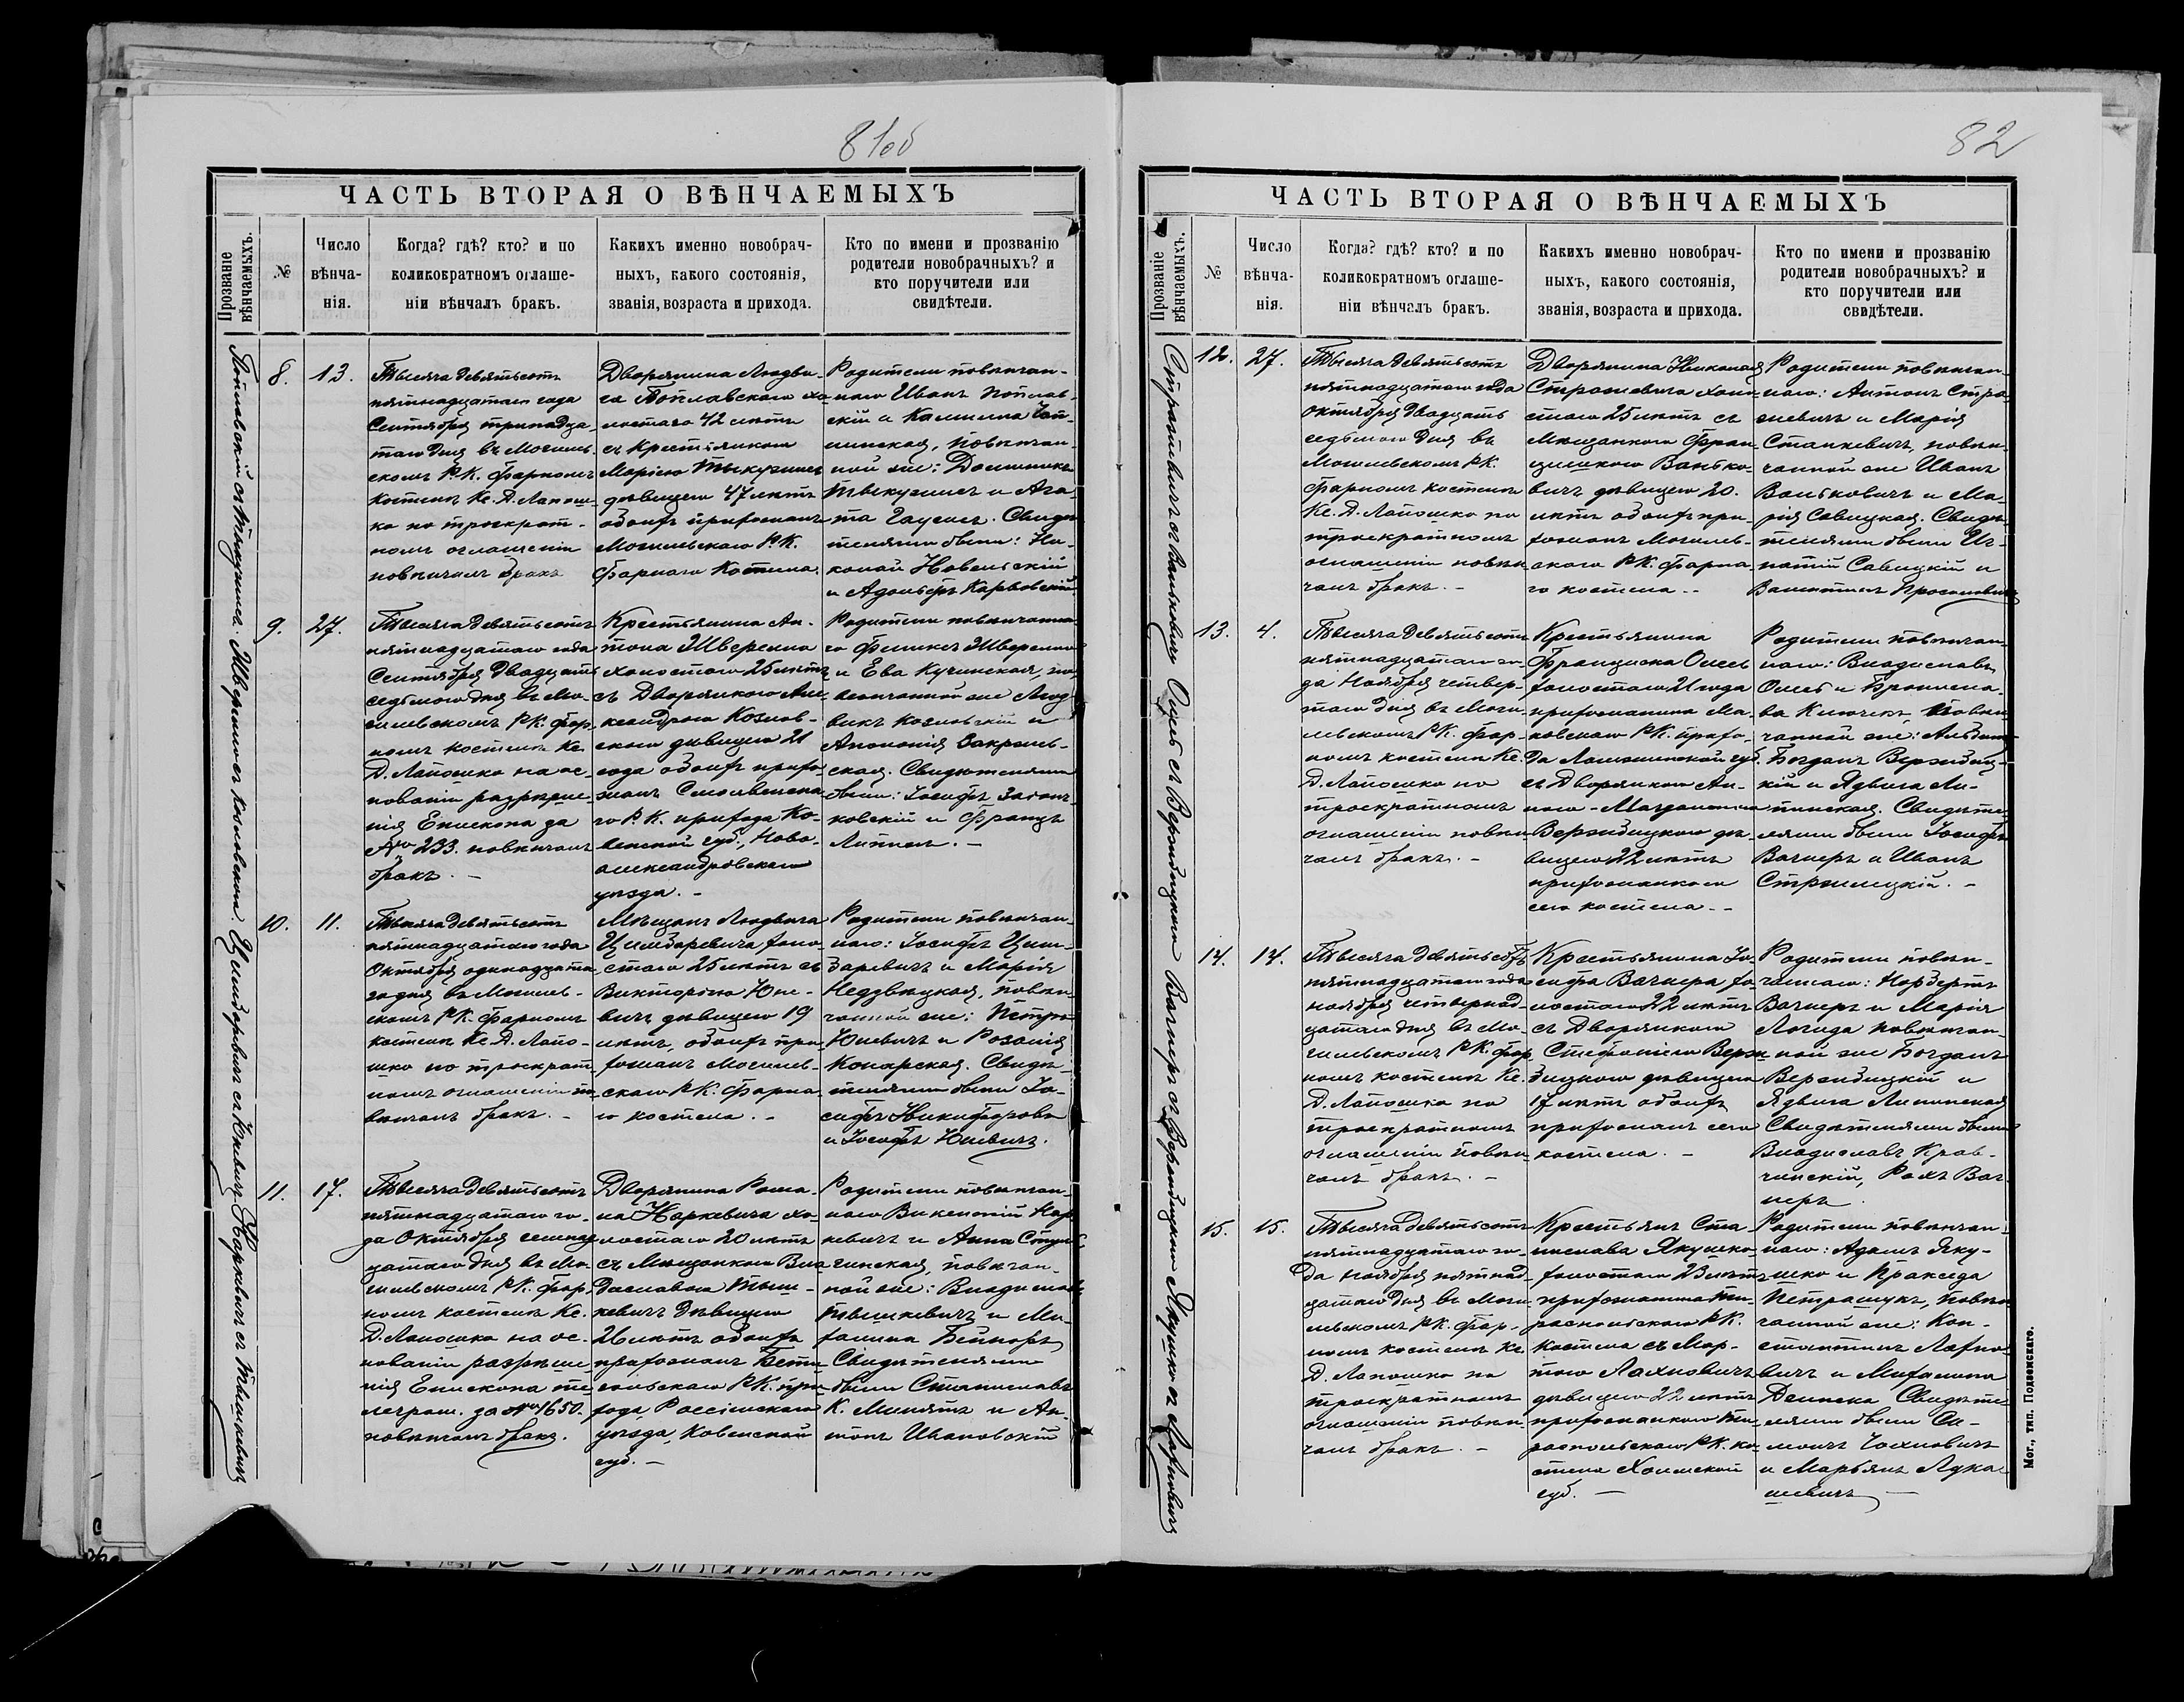 81об
ЧАСТЬ ВТОРАЯ О ВѢНЧАЕМЫХЪ
Прозваніе
вѣнчаемыхъ.
№
Число
вѣнча-
нія.
Когда? гдѣ? кто? и по
коликократномъ оглаше-
ніи вѣнчалъ бракъ.
Какихъ именно новобрач-
ныхъ, какого состоянія,
званія, возраста и прихода.
Кто по имени и прозванію
родители новобрачныхъ? и
кто поручители или
свидѣтели.
8.
13.
Тысяча девятьсотъ
пятнадцатаго года
Сентября тринадца-
таго дня въ Могилев-
скомъ Р.К. фарномъ
костелѣ Кс. Д. Лапош-
ко по троекрат-
номъ оглашеніи
повѣнчалъ бракъ
Дворянина Людви-
га Поплавскаго хо-
лостаго 42 лѣтъ
съ Крестьянкою
дѣвицею 47 лѣтъ
обоихъ прихожанъ
Могилевскаго Р.К.
фарнаго Костела.
Родители повѣнчан-
наго Иванъ Поплав-
скій и
повѣнчан-
ной же: Доминикъ
и Ага-
та Свидѣ-
телями были: Ни-
колай Новельскій
и Адольфъ Карповскій
9.
27.
Тысяча девятьсотъ
пятнадцатаго года
Сентября двадцать
седьмого дня въ Мо-
гилевскомъ Р.К. фар-
номъ костелѣ Кс.
Д. Лапошко на ос-
нованіи разрѣше-
нія Епископа за
№ 233. повѣнчалъ
бракъ. -
Крестьянина Ан-
тона
холостаго 25 лѣтъ
съ Дворянкою Але-
ксандрою Козлов-
скою дѣвицею 21
года обоихъ прихо-
жанъ
го Р.К. прихода Ко-
венской губ., Ново-
александровскаго
уѣзда. -
Родители повѣнчанна-
го Феликсъ
и Ева Кучинская, по-
вѣнчанной же Люд-
викъ Козловскій и
Аполонія Закржев-
ская. Свидѣтелями
были: Іосифъ
ковскій и Францъ
10.
11.
Тысяча девятьсотъ
пятнадцатаго года
Октября одинадцата-
го дня въ Могилев-
скомъ Р.К. фарномъ
костелѣ Кс. Д. Лапо-
шко по троекрат-
номъ оглашеніи по-
вѣнчалъ бракъ. -
Мѣщанъ Людвига
Цимбаревича холо-
стаго 25 лѣтъ съ
Викторіею Юне-
вичъ дѣвицею 19
лѣтъ, обоихъ при-
хожанъ Могилев-
скаго Р.К. фарна-
го костела. -
Родители повѣнчан-
наго: Іосифъ Цим-
баревичъ и Марія
Недзвѣцкая, повѣн-
чанной же: Петръ
Юневичъ и Розалія
Комарская. Свидѣ-
телями были Іо-
сифъ Никифоровъ
и Іосифъ Юневичъ.
11.
17.
Тысяча девятьсотъ
пятнадцатаго го-
да Октября семнад-
цатаго дня въ Мо-
гилевскомъ Р.К. фар-
номъ костелѣ Кс.
Д. Лапошко на ос-
нованіи разрѣше-
нія Епископа те-
леграм. за № 1650.
повѣнчалъ бракъ.
Дворянина Рома-
на Наркевича хо-
лостаго 20 лѣтъ
съ Мѣщанкою Вла-
диславою Тыш-
кевичъ дѣвицею
26 лѣтъ обоихъ
прихожанъ Бети-
гольскаго Р.К. при-
хода Россіенскаго
уѣзда, Ковенской
губ. -
Родители повѣнчан-
наго Викентій Нар-
кевичъ и Анна
повѣнчан-
ной же: Владиславъ
Тышкевичъ и Ми-
халина
Свидѣтелями
были Станиславъ
К. и Ан-
тонъ Ивановскій
82
ЧАСТЬ ВТОРАЯ О ВѢНЧАЕМЫХЪ
Прозваніе
вѣнчаемыхъ.
№
Число
вѣнча-
нія.
Когда? гдѣ? кто? и по
коликократномъ оглаше-
ніи вѣнчалъ бракъ.
Какихъ именно новобрач-
ныхъ, какого состоянія,
званія, возраста и прихода.
Кто по имени и прозванію
родители новобрачныхъ? и
кто поручители или
свидѣтели.
12.
27.
Тысяча девятьсотъ
пятнадцатаго года
Октября двадцать
седьмого дня въ
Могилевскомъ Р.К.
фарномъ костелѣ
Кс. Д. Лапошко по
троекратномъ
оглашеніи повѣн-
чалъ бракъ. -
Дворянина Николая
холо-
стаго 25 лѣтъ съ
Мѣщанкою Фран-
цишкою Ванько-
вичъ дѣвицею 20.
лѣтъ обоихъ при-
хожанъ Могилев-
скаго Р.К. фарна-
го костела. -
Родители повѣнчан-
наго: Антонъ
и Марія
Станкевичъ, повѣн-
чанной же Иванъ
Ваньковичъ и Ма-
рія Савицкая. Свидѣ-
телями были Иг-
натій Савицкій и
13.
4.
Тысяча девятьсотъ
пятнадцатаго го-
да Ноября четвер-
таго дня въ Моги-
левскомъ Р.К. фар-
номъ костелѣ Кс.
Д. Лапошко по
троекратномъ
оглашеніи повѣн-
чалъ бракъ. -
Крестьянина
Франциска
холостаго 21 года
прихожанина Ма-
ковскаго Р.К. прихо-
да Ломжинской губ.
съ Дворянкою Ан-
ною-Магдаленою
Вержбицкою дѣ-
вицею 22 лѣтъ
прихожанкою
сего костела. -
Родители повѣнчан-
наго: Владиславъ
и Бронисла-
ва повѣн-
чанной же:
Богданъ Вержбиц-
кій и Ядвига Ли-
пинская. Свидѣте-
лями были Іосифъ
Вагнеръ и Иванъ
Стржелецкій. -
14.
14.
Тысяча девятьсотъ
пятнадцатаго года
ноября четырнад-
цатаго дня въ Мо-
гилевскомъ Р.К. фар-
номъ костелѣ Кс.
Д. Лапошко по
троекратномъ
оглашеніи повѣн-
чалъ бракъ. -
Крестьянина Іо-
сифа Вагнера хо-
лостаго 22 лѣтъ
съ Дворянкою
Стефаніею Верж-
бицкою дѣвицею
17 лѣтъ обоихъ
прихожанъ сего
костела. -
Родители повѣн-
чаннаго: Норбертъ
Вагнеръ и Марія
Логида повѣнчан-
ной же Богданъ
Вержбицкій и
Ядвига Липинская
Свидѣтелями были
Владиславъ Крав-
чинскій, Рохъ Ваг-
неръ.
15.
15.
Тысяча девятьсотъ
пятнадцатаго го-
да ноября пятнад-
цатаго дня въ Моги-
левскомъ Р.К. фар-
номъ костелѣ Кс
Д. Лапошко по
троекратномъ
оглашеніи повѣн-
чалъ бракъ. -
Крестьянъ Ста-
нислава Якушко-
холостаго 23 лѣтъ
прихожанина Ти-
распольскаго Р.К.
костела съ Мар-
тою Лахновичъ
дѣвицею 22 лѣтъ
прихожанкою Ти-
распольскаго Р.К. ко-
стела Холмской
губ. -
Родители повѣнчан-
наго: Адамъ Яку-
шко и Пракседа
Петрашукъ, повѣн-
чанной же: Кон-
стантинъ Лахно-
вичъ и Михалина
Свидѣте-
лями были
и Марьянъ Лука-
шевичъ -
Мог., тип. Подземскаго.